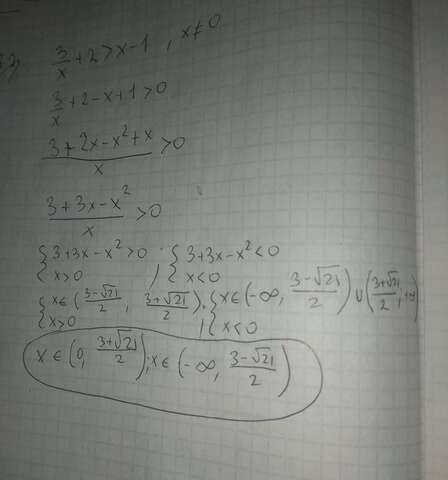 3/x + 2 > x - 1 , x ≠ 0
3/x + 2 - x + 1 > 0
(3 + 2x - x² + x)/x > 0
(3 + 3x - x²)/x > 0
{ 3 + 3x - x² > 0 , { 3 + 3x - x² < 0
{ x > 0 { x < 0
{ x ∈ ( (3-√21)/2 , (3+√21)/2 ) , { x ∈ (-∞, (3-√21)/2 ) ∪ ( (3+√21)/2 , +∞)
{ x > 0 , { x < 0
x ∈ (0, (3+√21)/2 ) ; x ∈ (-∞, (3-√21)/2 )